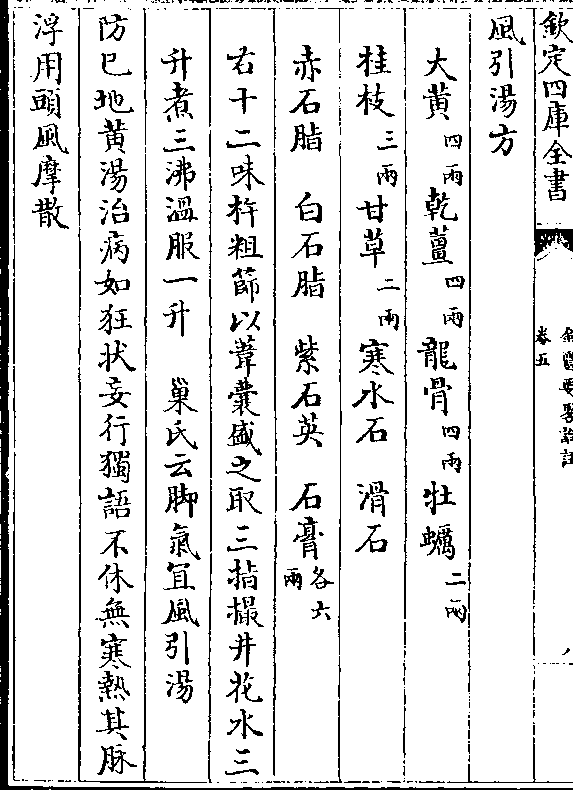 欽定四庫全書
金匱要畧論註
卷五
八
風引湯方
大黃四兩 乾薑四兩 龍骨四兩 牡蠣二兩
桂枝三兩 甘草二兩 寒水石 滑石
赤石脂 白石脂 紫石英 石膏各六兩
右十二味杵粗篩以葦囊盛之取三指撮井花水三
升煮三沸溫服一升 巢氏云脚氣宜風引湯
防巳地黃湯治病如狂狀妄行獨語不休無寒熱其脉
浮用頭風摩散